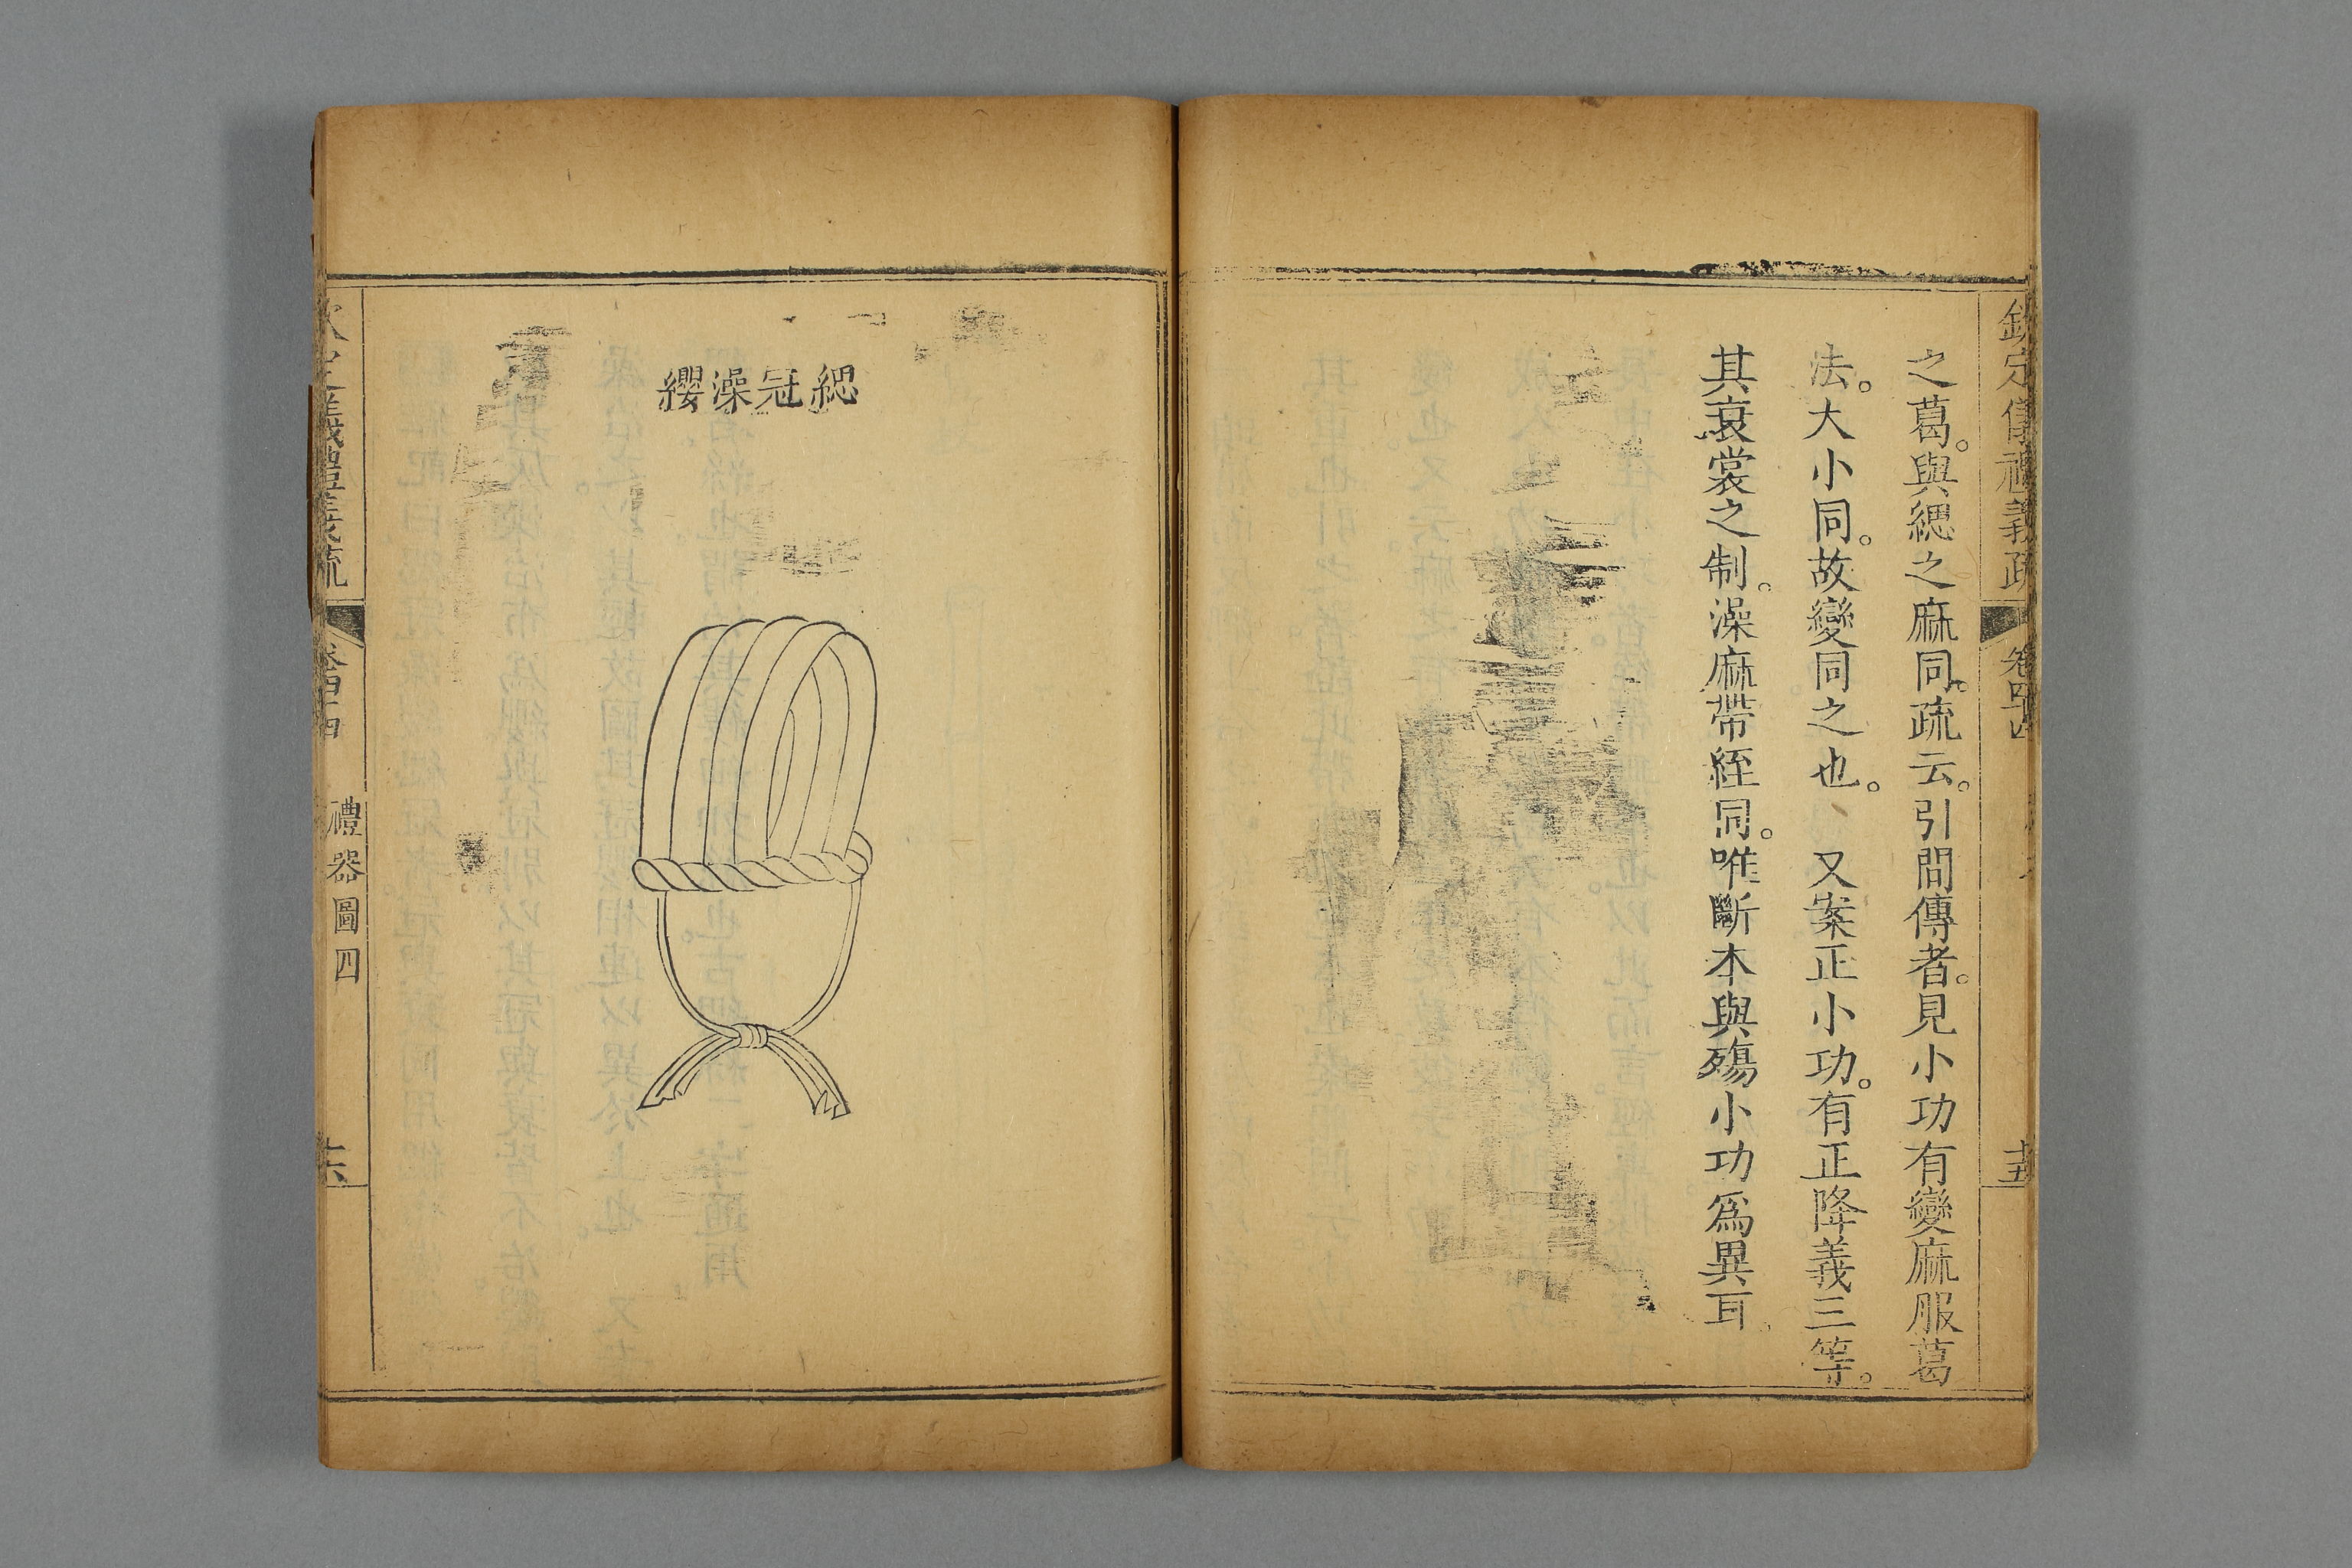 欽定儀禮義疏 卷四十四 十五
之葛。與緦之麻同。疏云。引問傳者。見小功有變麻服葛
法。大小同。故變同之也。 又案正小功。有正降義三等。
其衰裳之制。澡麻帶絰同。唯斷本與殤小功爲異耳
緦冠澡纓
欽定儀禮義疏 卷四十四 禮器圖四 十六